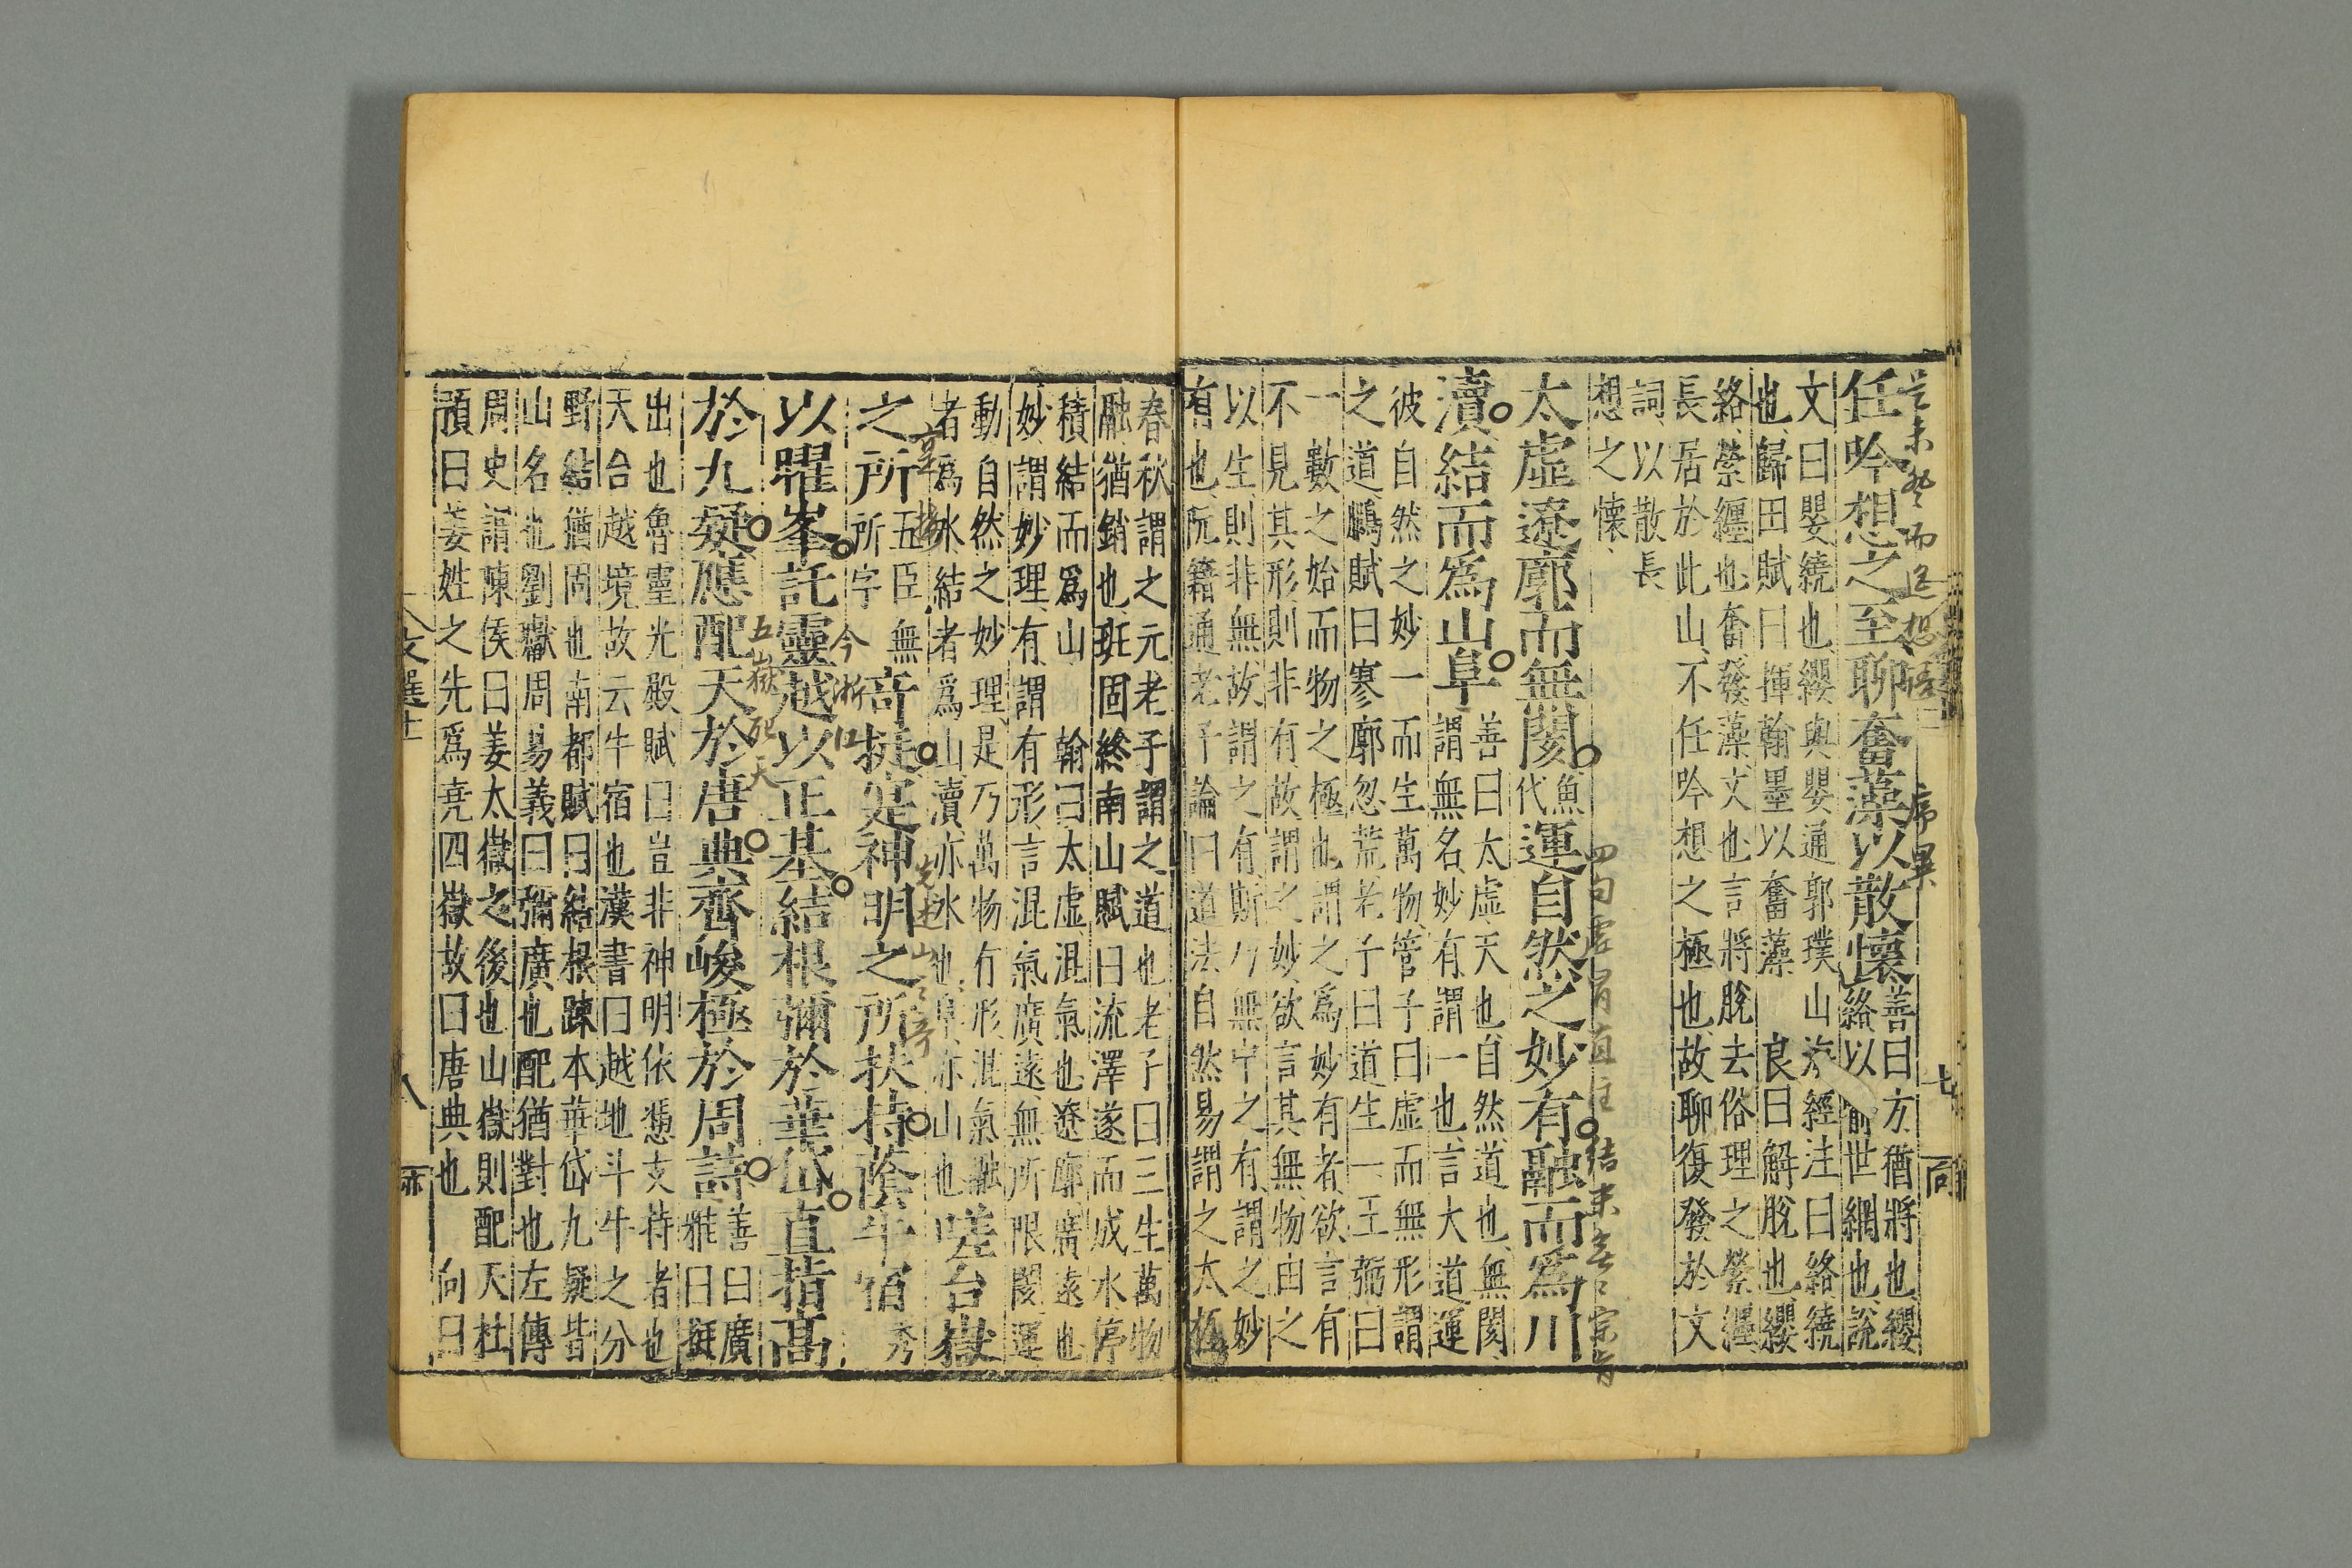 任吟想之至聊奮藻以散懷善曰方猶將也纓
絡以喻世網也說
文曰嬰繞也纓與嬰通郭璞山海經注曰絡繞
也歸田賦曰揮翰墨以奮藻 良曰解脫也纓
絡縈纏也奮發藻文也言將脫去俗理之縈纏
長居於此山不任吟想之極也故聊復發於文
詞以散長
想之懷
太虛遼廓而無閡代運自然之妙有融而為川
瀆結而為山阜善曰太虛天也自然道也無閡
謂無名妙有謂一也言大道運
彼自然之妙一而生萬物管子曰虛而無形謂
之道鵬賦曰寥廓忽荒老子曰道生一王弼曰
一數之始而物之極也謂之為妙有者欲言有
不見其形則非有故謂之妙欲言其無物由之
以生則非無故謂之有斯乃無中之有謂之妙
有也阮籍通老子論曰道法自然易謂之太極
春秋謂之元老子謂之道也老子曰三生萬物
融猶銷也班固終南山賦曰流澤遂而成水停
積結而為山 翰曰太虛混氣也遼廓廣遠也
妙謂妙理有謂有形言混氣廣遠無所限閡運
動自然之妙理是乃萬物有形混氣融
者為水結者為山瀆亦水也阜亦山也嗟台嶽
之所五臣無所字奇挺寔神明之所扶持蔭牛宿秀
以曜峯託靈越以正基結根彌於華岱直指高
於九疑應配天於唐典齊峻極於周詩善曰廣
雅曰挺
出也魯靈光殿賦曰豈非神明依憑支持者也
天台越境故云牛宿也漢書曰越地斗牛之分
野結猶固也南都賦曰結根踈本華岱九疑皆
山名也劉瓛周易義曰彌廣也配猶對也左傳
周史謂陳侯曰姜太嶽之後也山嶽則配天杜
預曰姜姓之先為堯四嶽故曰唐典也 向曰
文選十一
八
七
序畢
今浙江
五嶽配天